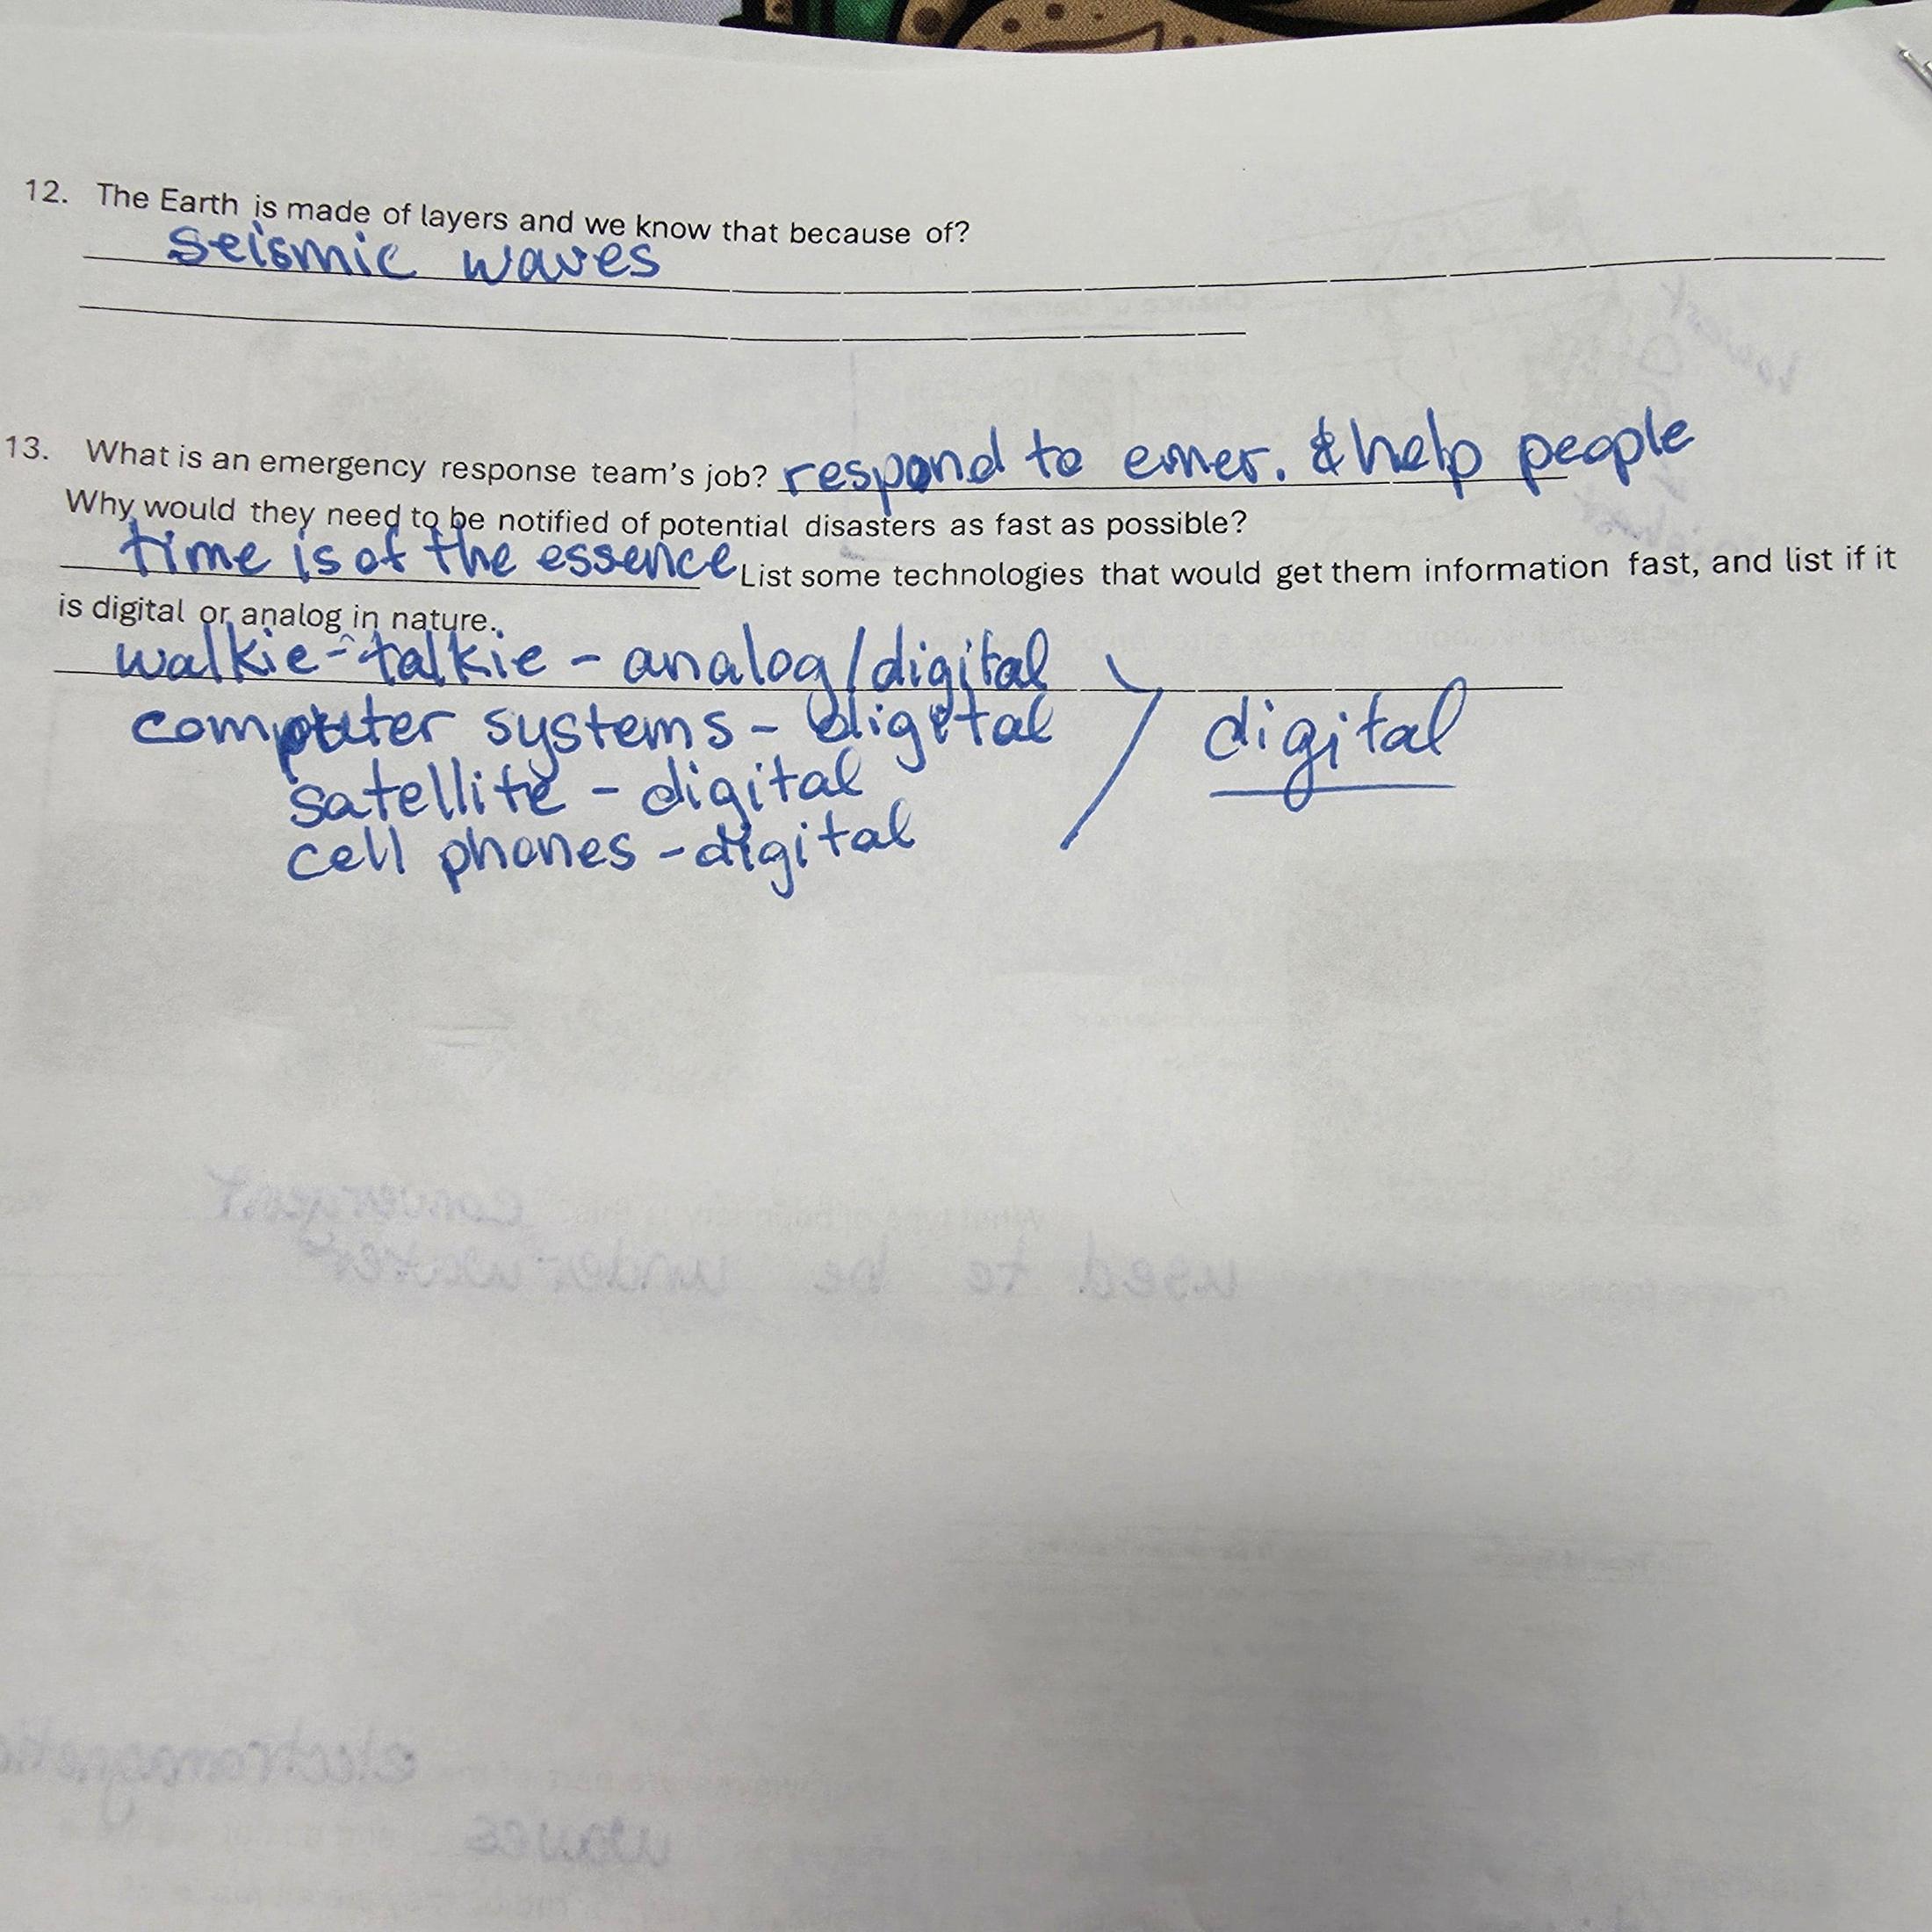 12. The Earth is made of layers and we know that because of?
seismic waves
13. What is an emergency response team's job? respond to emer. & help people
Why would they need to be notified of potential disasters as fast as possible?
time is of the essence List some technologies that would get them information fast, and list if it
is digital or analog in nature.
walkie-talkie - analog/digital
computer systems - digital digital
satellite - digital
cell phones - digital